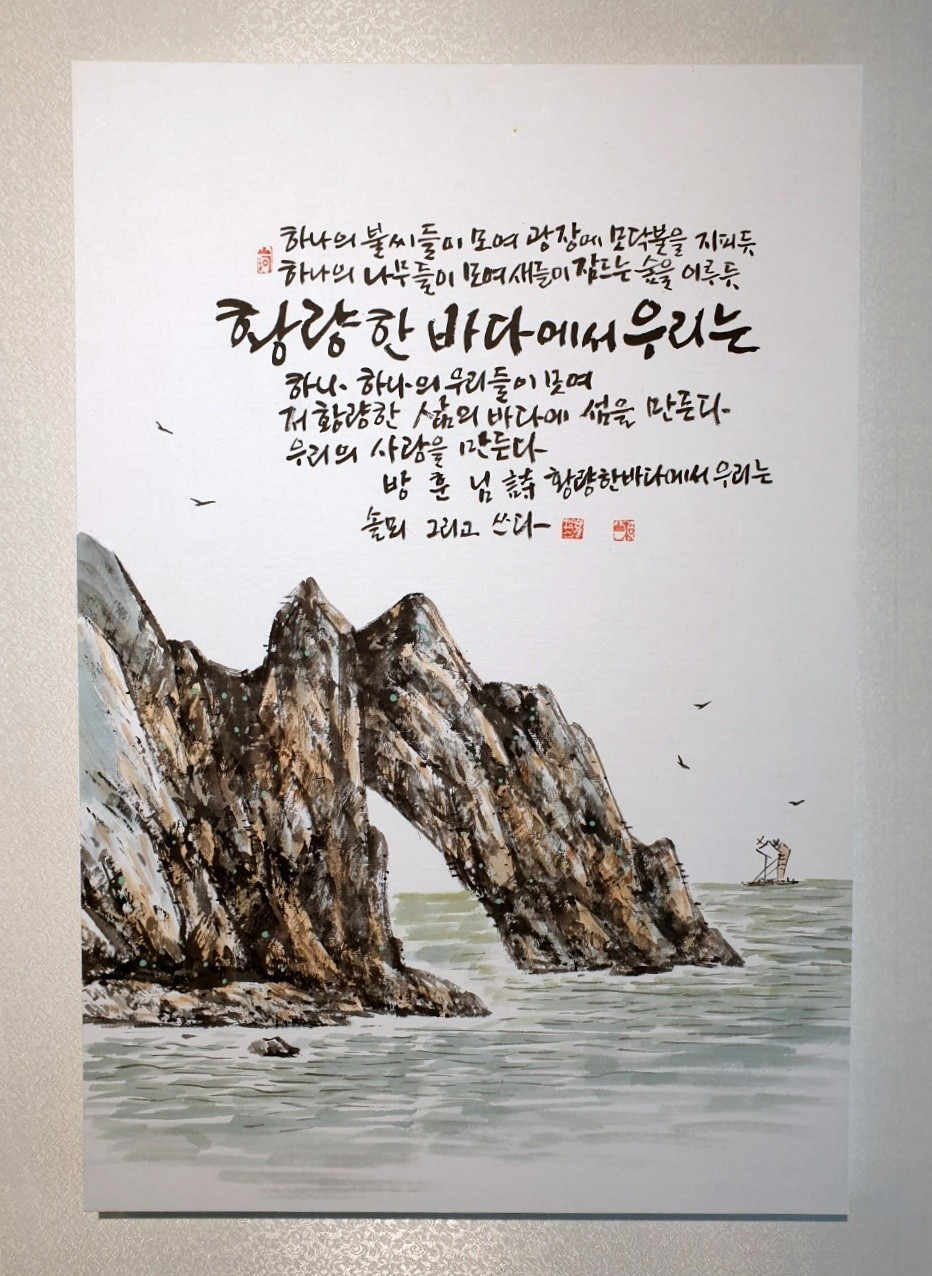 하나의 불씨들이 모여 광장에 모닥불을 지피듯
하나의 나무들이 모여 새들이 잠드는 숲을 이루듯
황량한 바다에서 우리는
하나. 하나의 우리들이 모여
저 황량한 삶의 바다에 섬을 만든다.
우리의 사랑을 만든다.
방훈 님 詩 황량한 바다에서 우리는
솔뫼 그리고 쓰다